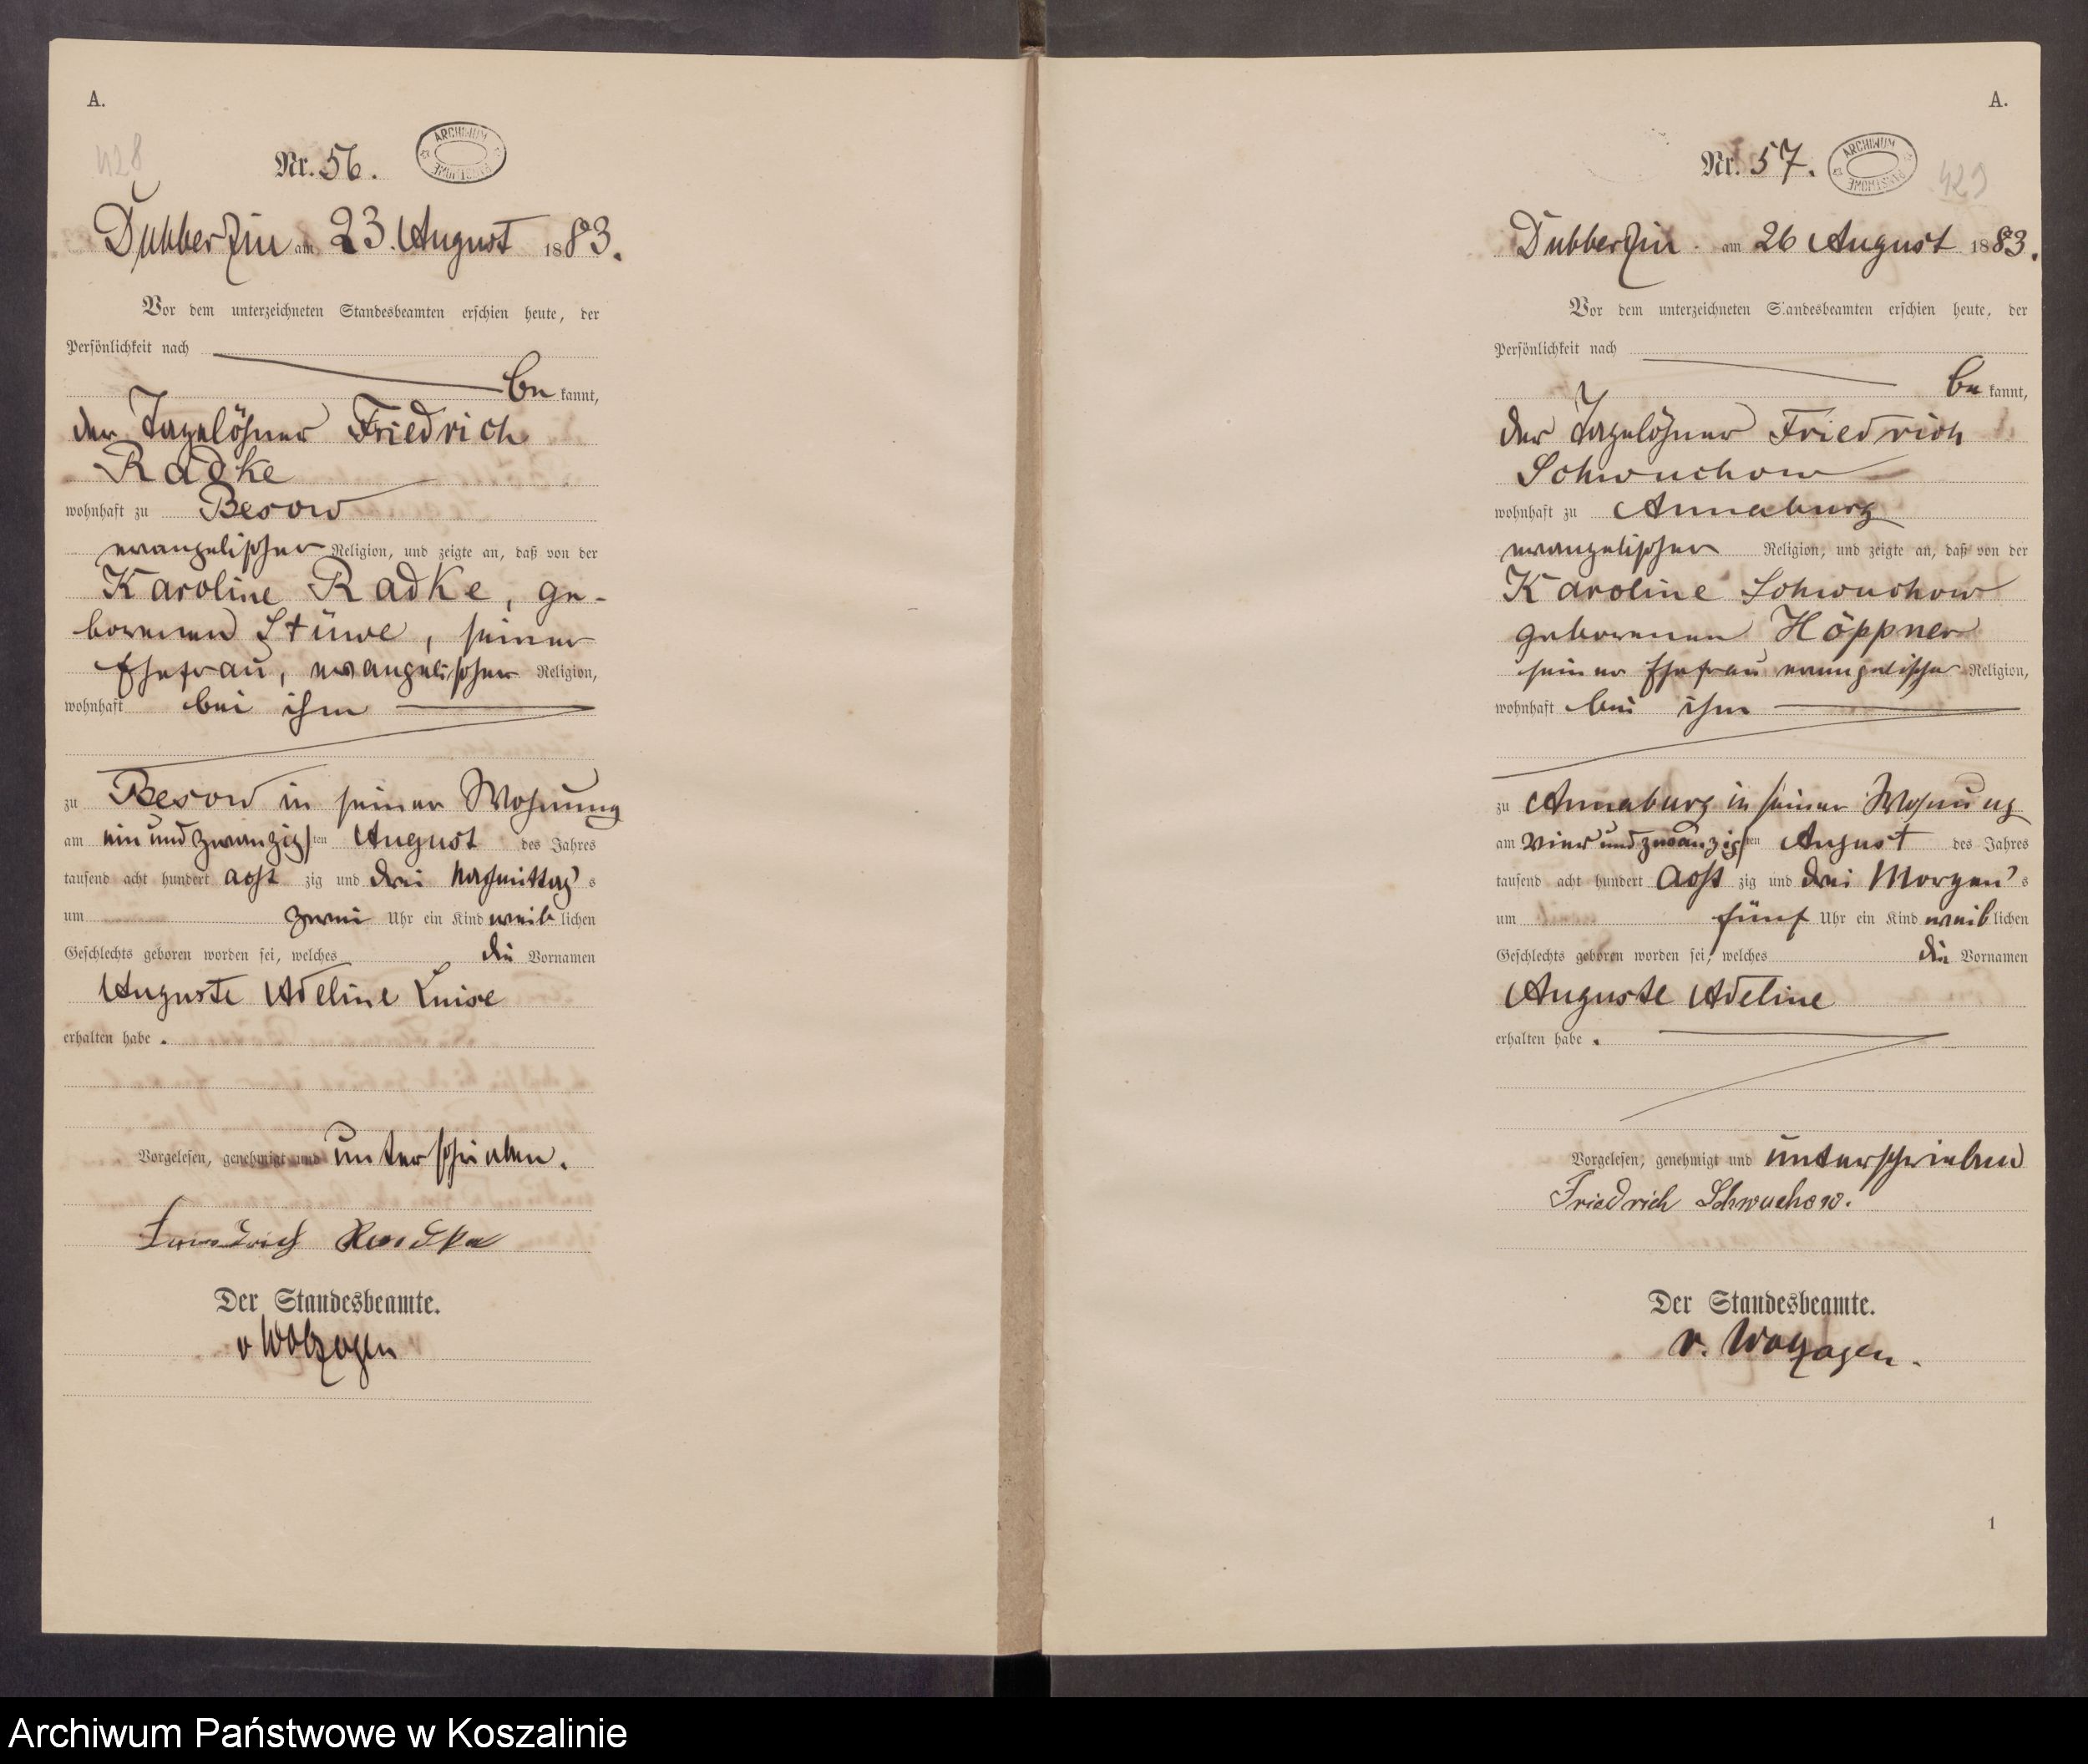 A.
428
Nr. 56.
ARCHIWUM PAŃSTWOWE
Dubberzin am 23. August 1883.
Vor dem unterzeichneten Standesbeamten erschien heute, der
Persönlichkeit nach
be kannt,
der Tagelöhner Friedrich
Radke
wohnhaft zu Besow
evangelischer Religion, und zeigte an, daß von der
Karoline Radke, ge-
borenen Stüwe, seiner
Ehefrau, evangelischer Religion,
wohnhaft bei ihm
zu Besow in seiner Wohnung
am ein und zwanzigsten August des Jahres
tausend acht hundert acht zig und drei Nachmittag's
um zwei Uhr ein Kind weib lichen
Geschlechts geboren worden sei, welches die Vornamen
Auguste Adeline Luise
erhalten habe.
Vorgelesen, genehmigt und unterschrieben.
Friedrich Radke
Der Standesbeamte.
v Wolzogen
A.
Nr. 57.
ARCHIWUM PAŃSTWOWE
429
Dubberzin am 26 August 1883.
Vor dem unterzeichneten Standesbeamten erschien heute, der
Persönlichkeit nach
be kannt,
der Tagelöhner Friedrich
Schwuchow
wohnhaft zu Annaburg
evangelischer Religion, und zeigte an, daß von der
Karoline Schwuchow
geborenen Höppner
seiner Ehefrau evangelischer Religion,
wohnhaft bei ihm
zu Annaburg in seiner Wohnung
am vier und zwanzigsten August des Jahres
tausend acht hundert acht zig und drei Morgen's
um fünf Uhr ein Kind weib lichen
Geschlechts geboren worden sei, welches die Vornamen
Auguste Adeline
erhalten habe.
Vorgelesen, genehmigt und unterschrieben
Friedrich Schwuchow.
Der Standesbeamte.
v. Wolzogen.
1
Archiwum Państwowe w Koszalinie